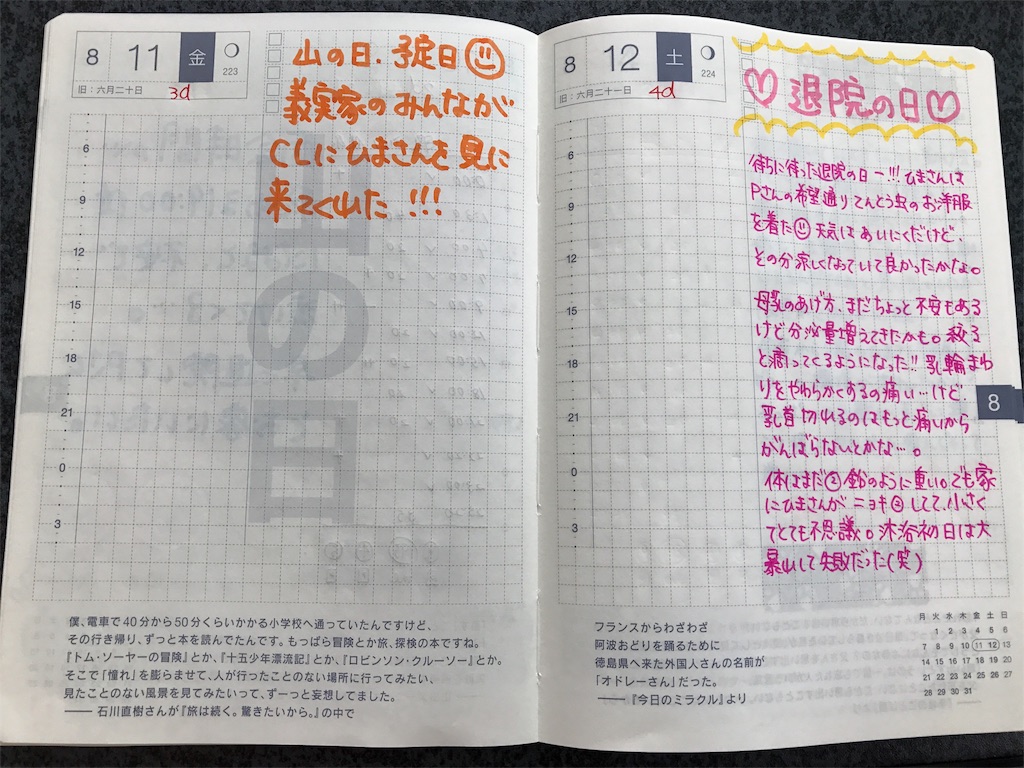 8 11 金
223
旧:六月二十日 3d
山の日、予定日
義実家のみんなが
CLにひまさんを見に
来てくれた!!!
6
9
12
15
18
21
0
3
僕、電車で40分から50分くらいかかる小学校へ通っていたんですけど、
その行き帰り、ずっと本を読んでたんです。もっぱら冒険とか旅、探検の本ですね。
『トム・ソーヤーの冒険』とか、『十五少年漂流記』とか、『ロビンソン・クルーソー』とか。
そこで「憧れ」を膨らませて、人が行ったことのない場所に行ってみたい、
見たことのない風景を見てみたいって、ずーっと妄想してました。
—— 石川直樹さんが『旅は続く。驚きたいから。』の中で
8 12 土
224
旧:六月二十一日 4d
♡退院の日♡
待ちに待った退院の日ー!!!ひまさんは
Pさんの希望通りてんとう虫のお洋服
を着た 天気はあいにくだけど、
その分涼しくなっていて良かったかな。
母乳のあげ方、まだちょっと不安もある
けど分泌量増えてきたかも。絞る
と滴ってくるようになった!!乳輪まわ
りをやわらかくするの痛い…けど、
乳首切れるのはもっと痛いから
がんばらないとかな…。
体はまだ②鉛のように重い。でも家
にひまさんがニョキ②してて、小さく
てとても不思議。沐浴初日は大
暴れして失敗だった(笑)
6
9
12
15
18
21
0
3
8
フランスからわざわざ
阿波おどりを踊るために
徳島県へ来た外国人さんの名前が
「オドレーさん」だった。
——『今日のミラクル』より
月 火 水 木 金 土 日
1 2 3 4 5 6
7 8 9 10 11 12 13
14 15 16 17 18 19 20
21 22 23 24 25 26 27
28 29 30 31